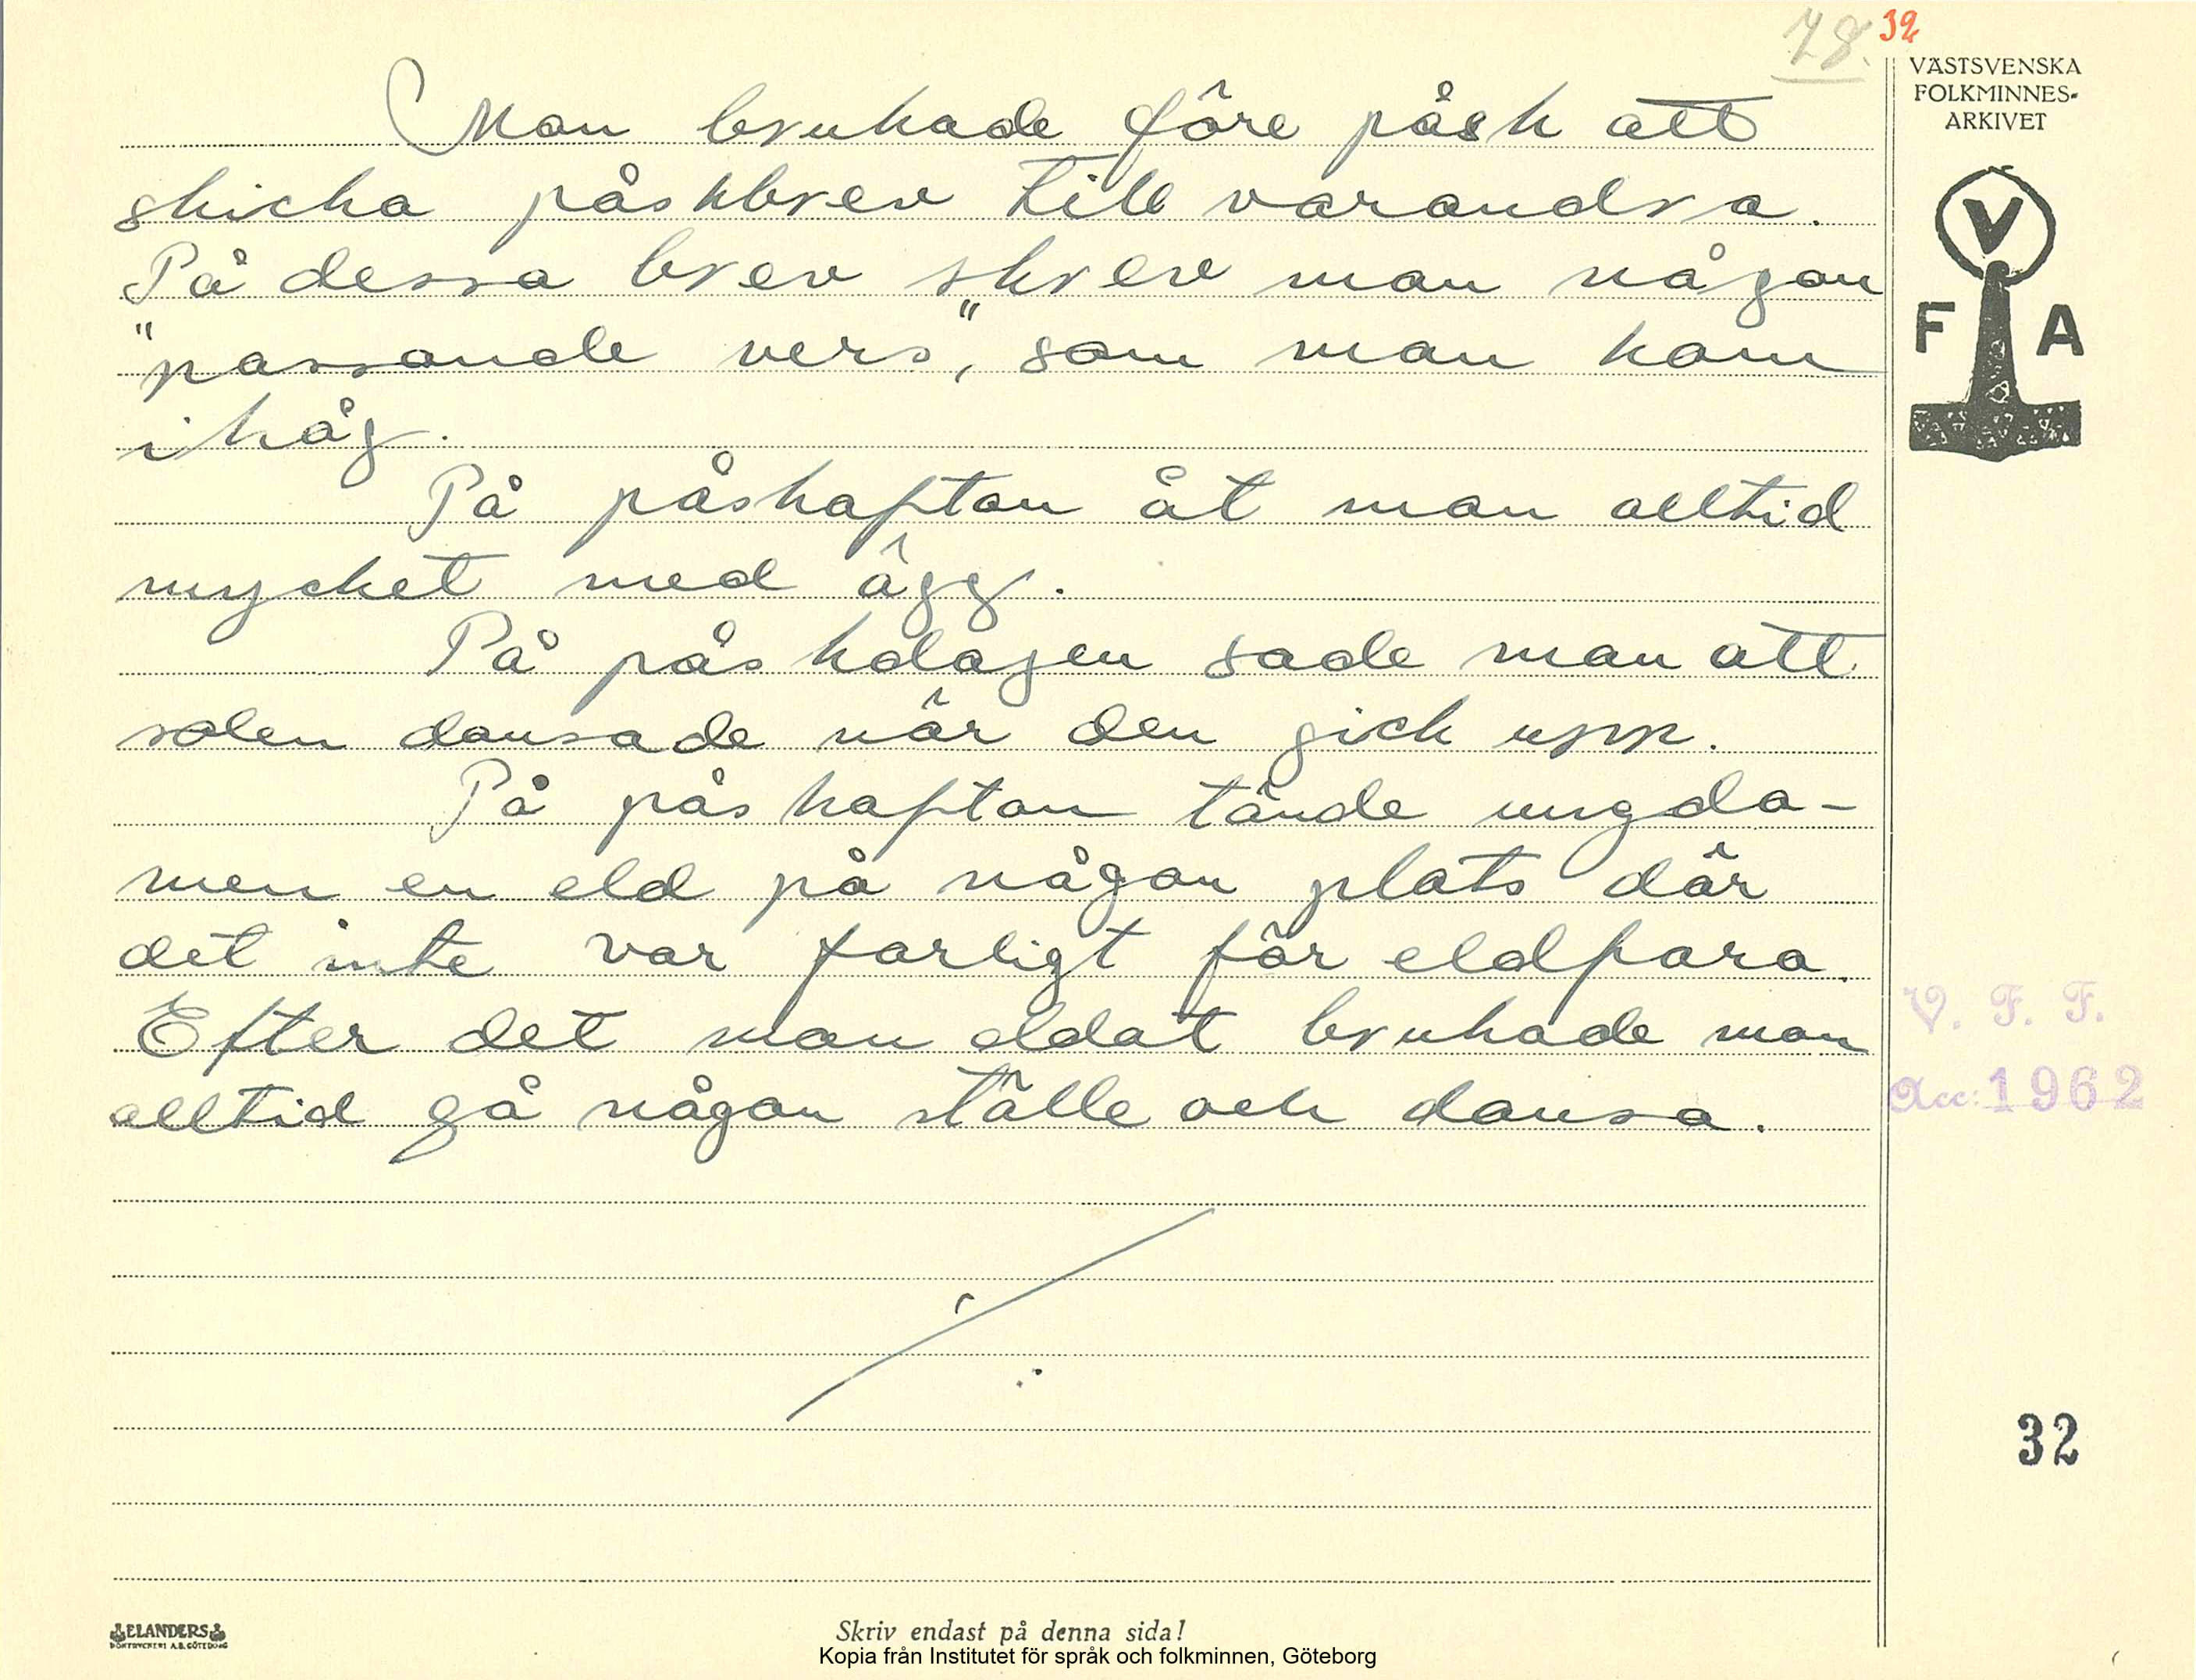 78.
32
VÄSTSVENSKA
FOLKMINNES-
ARKIVET
V
F A
Man brukade före påsk att
skicka påskbrev till varandra.
På dessa brev skrev man någon
"passande vers", som man kom
ihåg.
På påskafton åt man alltid
mycket med ägg.
På påskdagen sade man att
solen dansade när den gick upp.
På påskafton tände ungdo-
men en eld på någon plats där
det inte var farligt för eldfara.
Efter det man eldat brukade man
alltid gå någon ställe och dansa.
V. F. F.
Acc: 1962
32
ELANDERS
BOKTRYCKERI A.B. GÖTEBORG
Skriv endast på denna sida!
Kopia från Institutet för språk och folkminnen, Göteborg